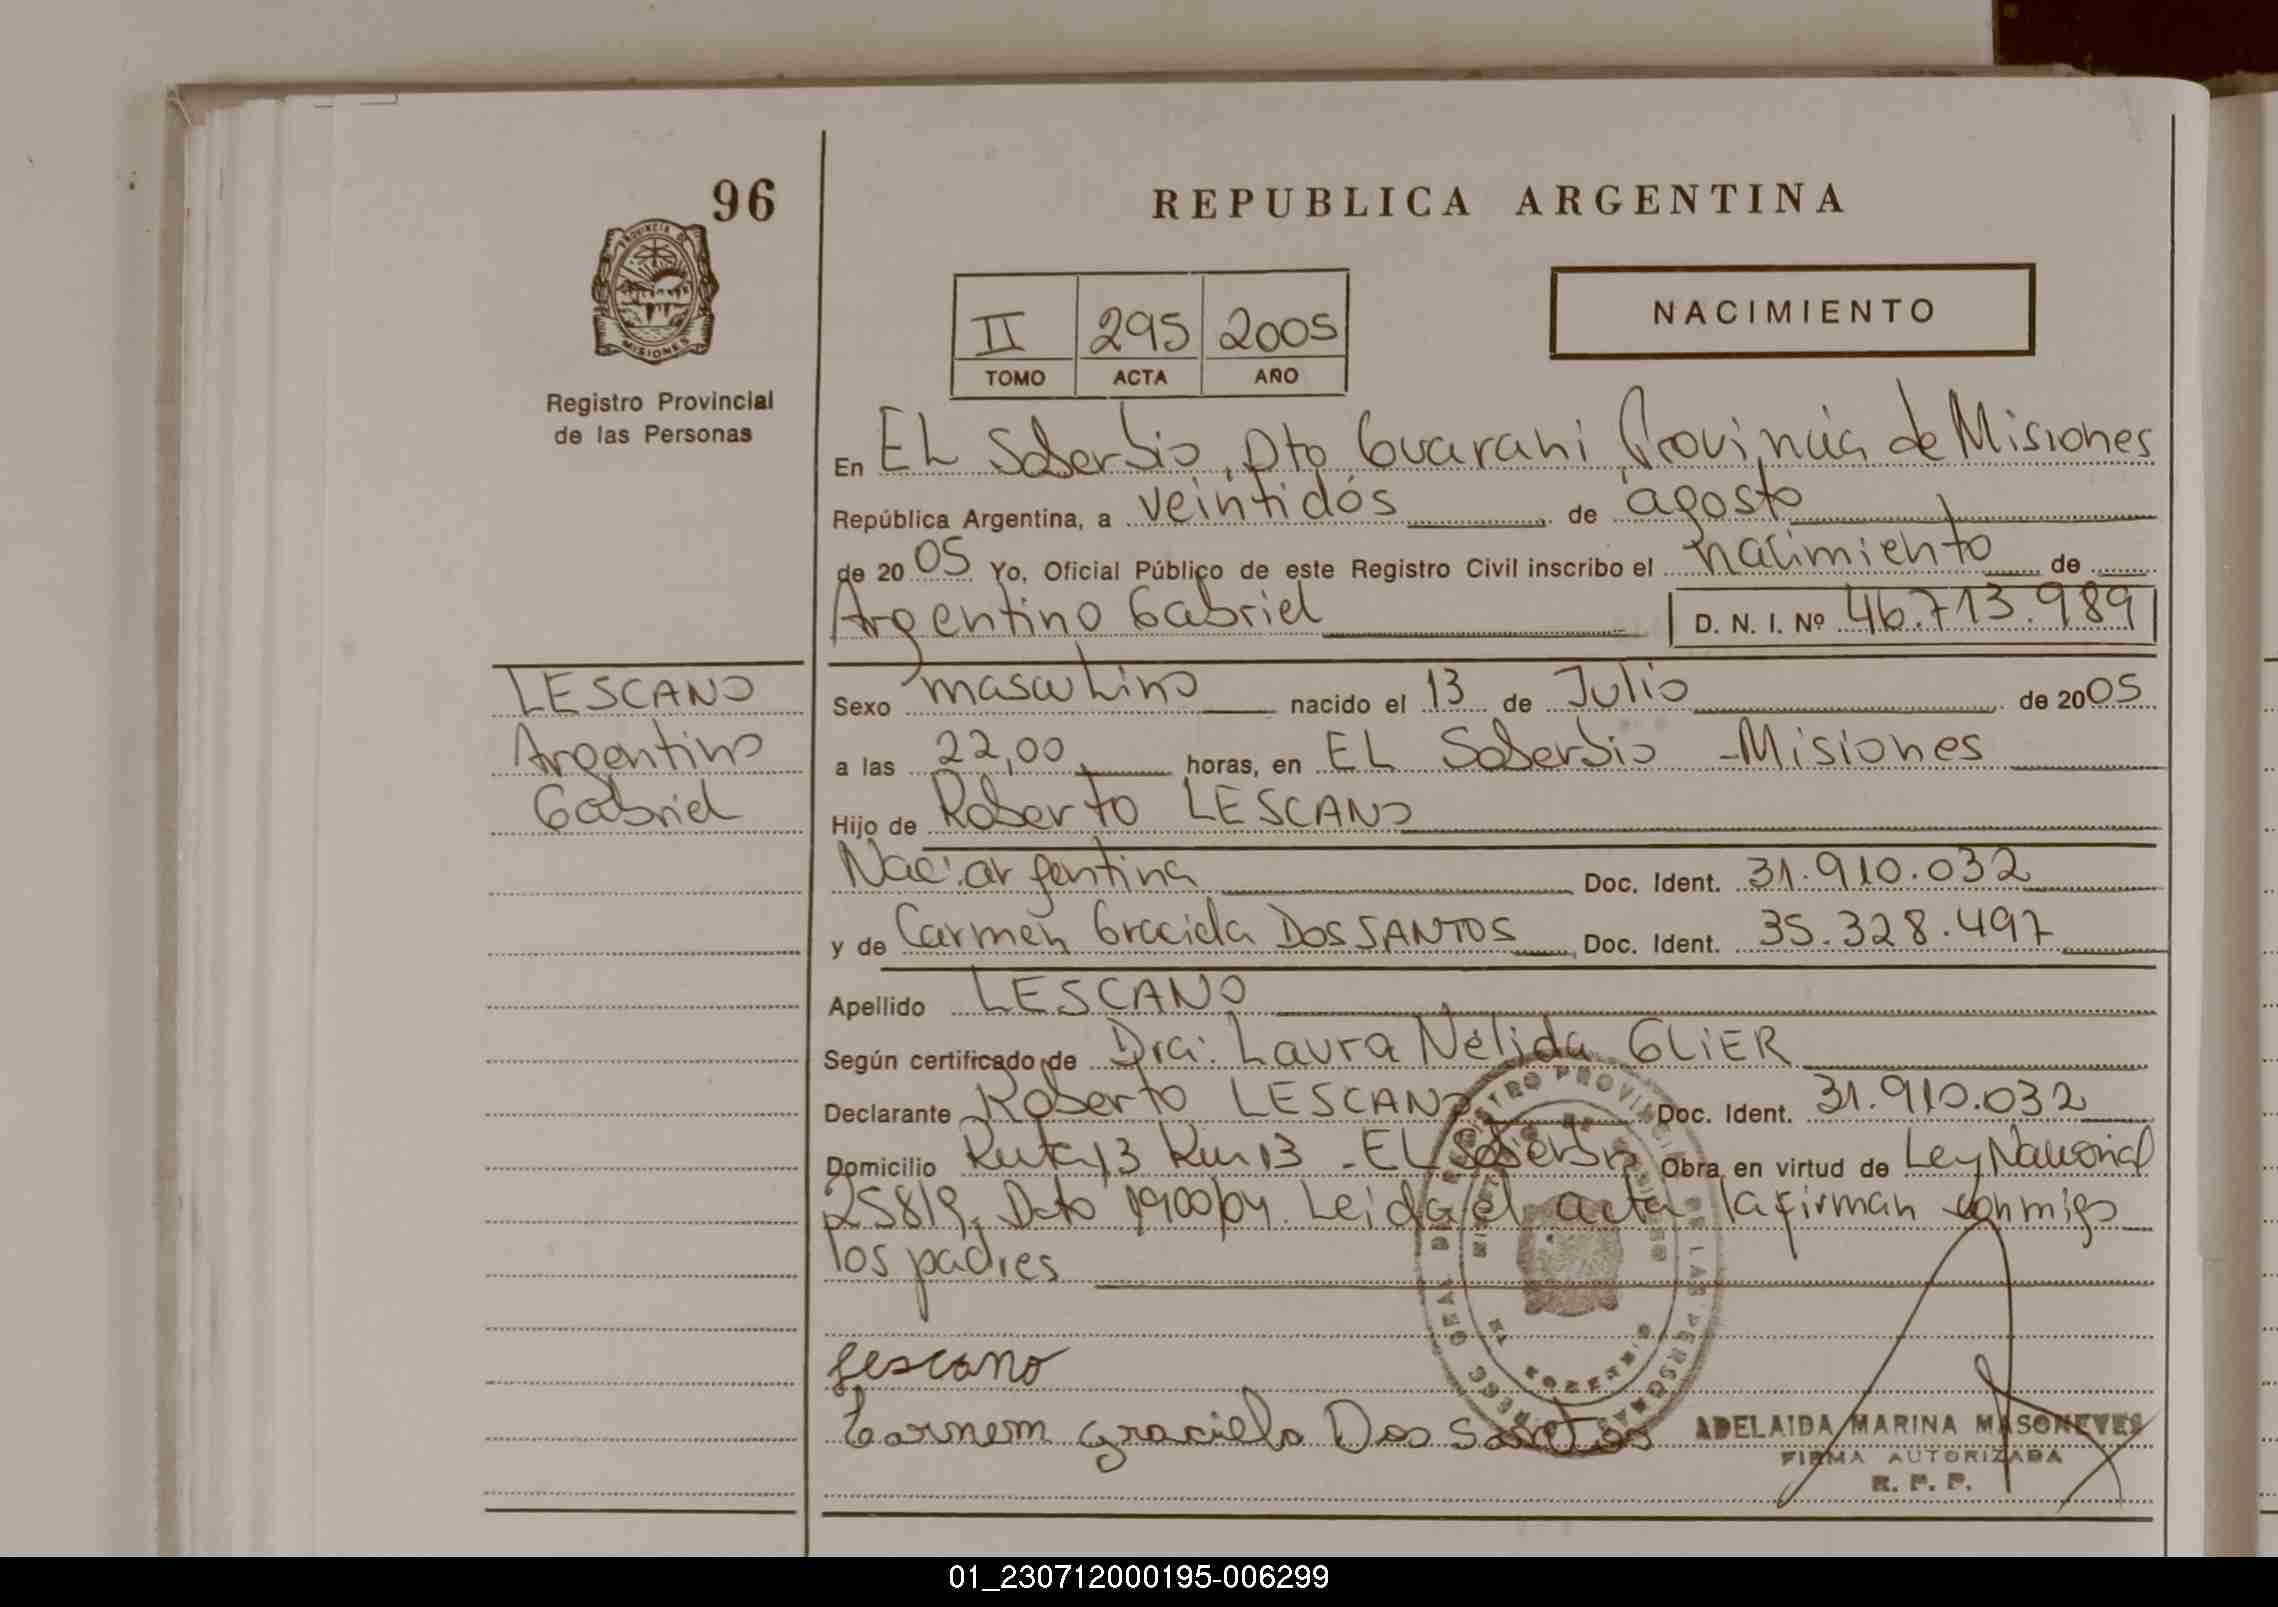 96
REPUBLICA ARGENTINA
PROVINCIA DE
MISIONES
Registro Provincial
de las Personas
II 295 2005
TOMO ACTA AÑO
NACIMIENTO
En EL Soberbio, Dto Guarani Provincia de Misiones
República Argentina, a veintidós de agosto
de 2005 Yo, Oficial Público de este Registro Civil inscribo el nacimiento de
Argentino Gabriel D. N. I. Nº 46.713.989
LESCANO
Argentino
Gabriel
Sexo masculino nacido el 13 de Julio de 2005
a las 22,00 horas, en EL Soberbio - Misiones
Hijo de Roberto LESCANO
Nac: argentina Doc. Ident. 31.910.032
y de Carmen Graciela DOS SANTOS Doc. Ident. 35.328.497
Apellido LESCANO
Según certificado de Dra: Laura Nélida GLIER
Declarante Roberto LESCANO Doc. Ident. 31.910.032
Domicilio Ruta 13 Km 13 - EL Soberbio Obra en virtud de Ley Nacional
25819, Dcto 1900/04. Leida el acta la firman conmigo
los padres
Lescano
Carmem graciela Dos Santos
ADELAIDA MARINA MASONEVES
FIRMA AUTORIZADA
R. P. P.
01_230712000195-006299